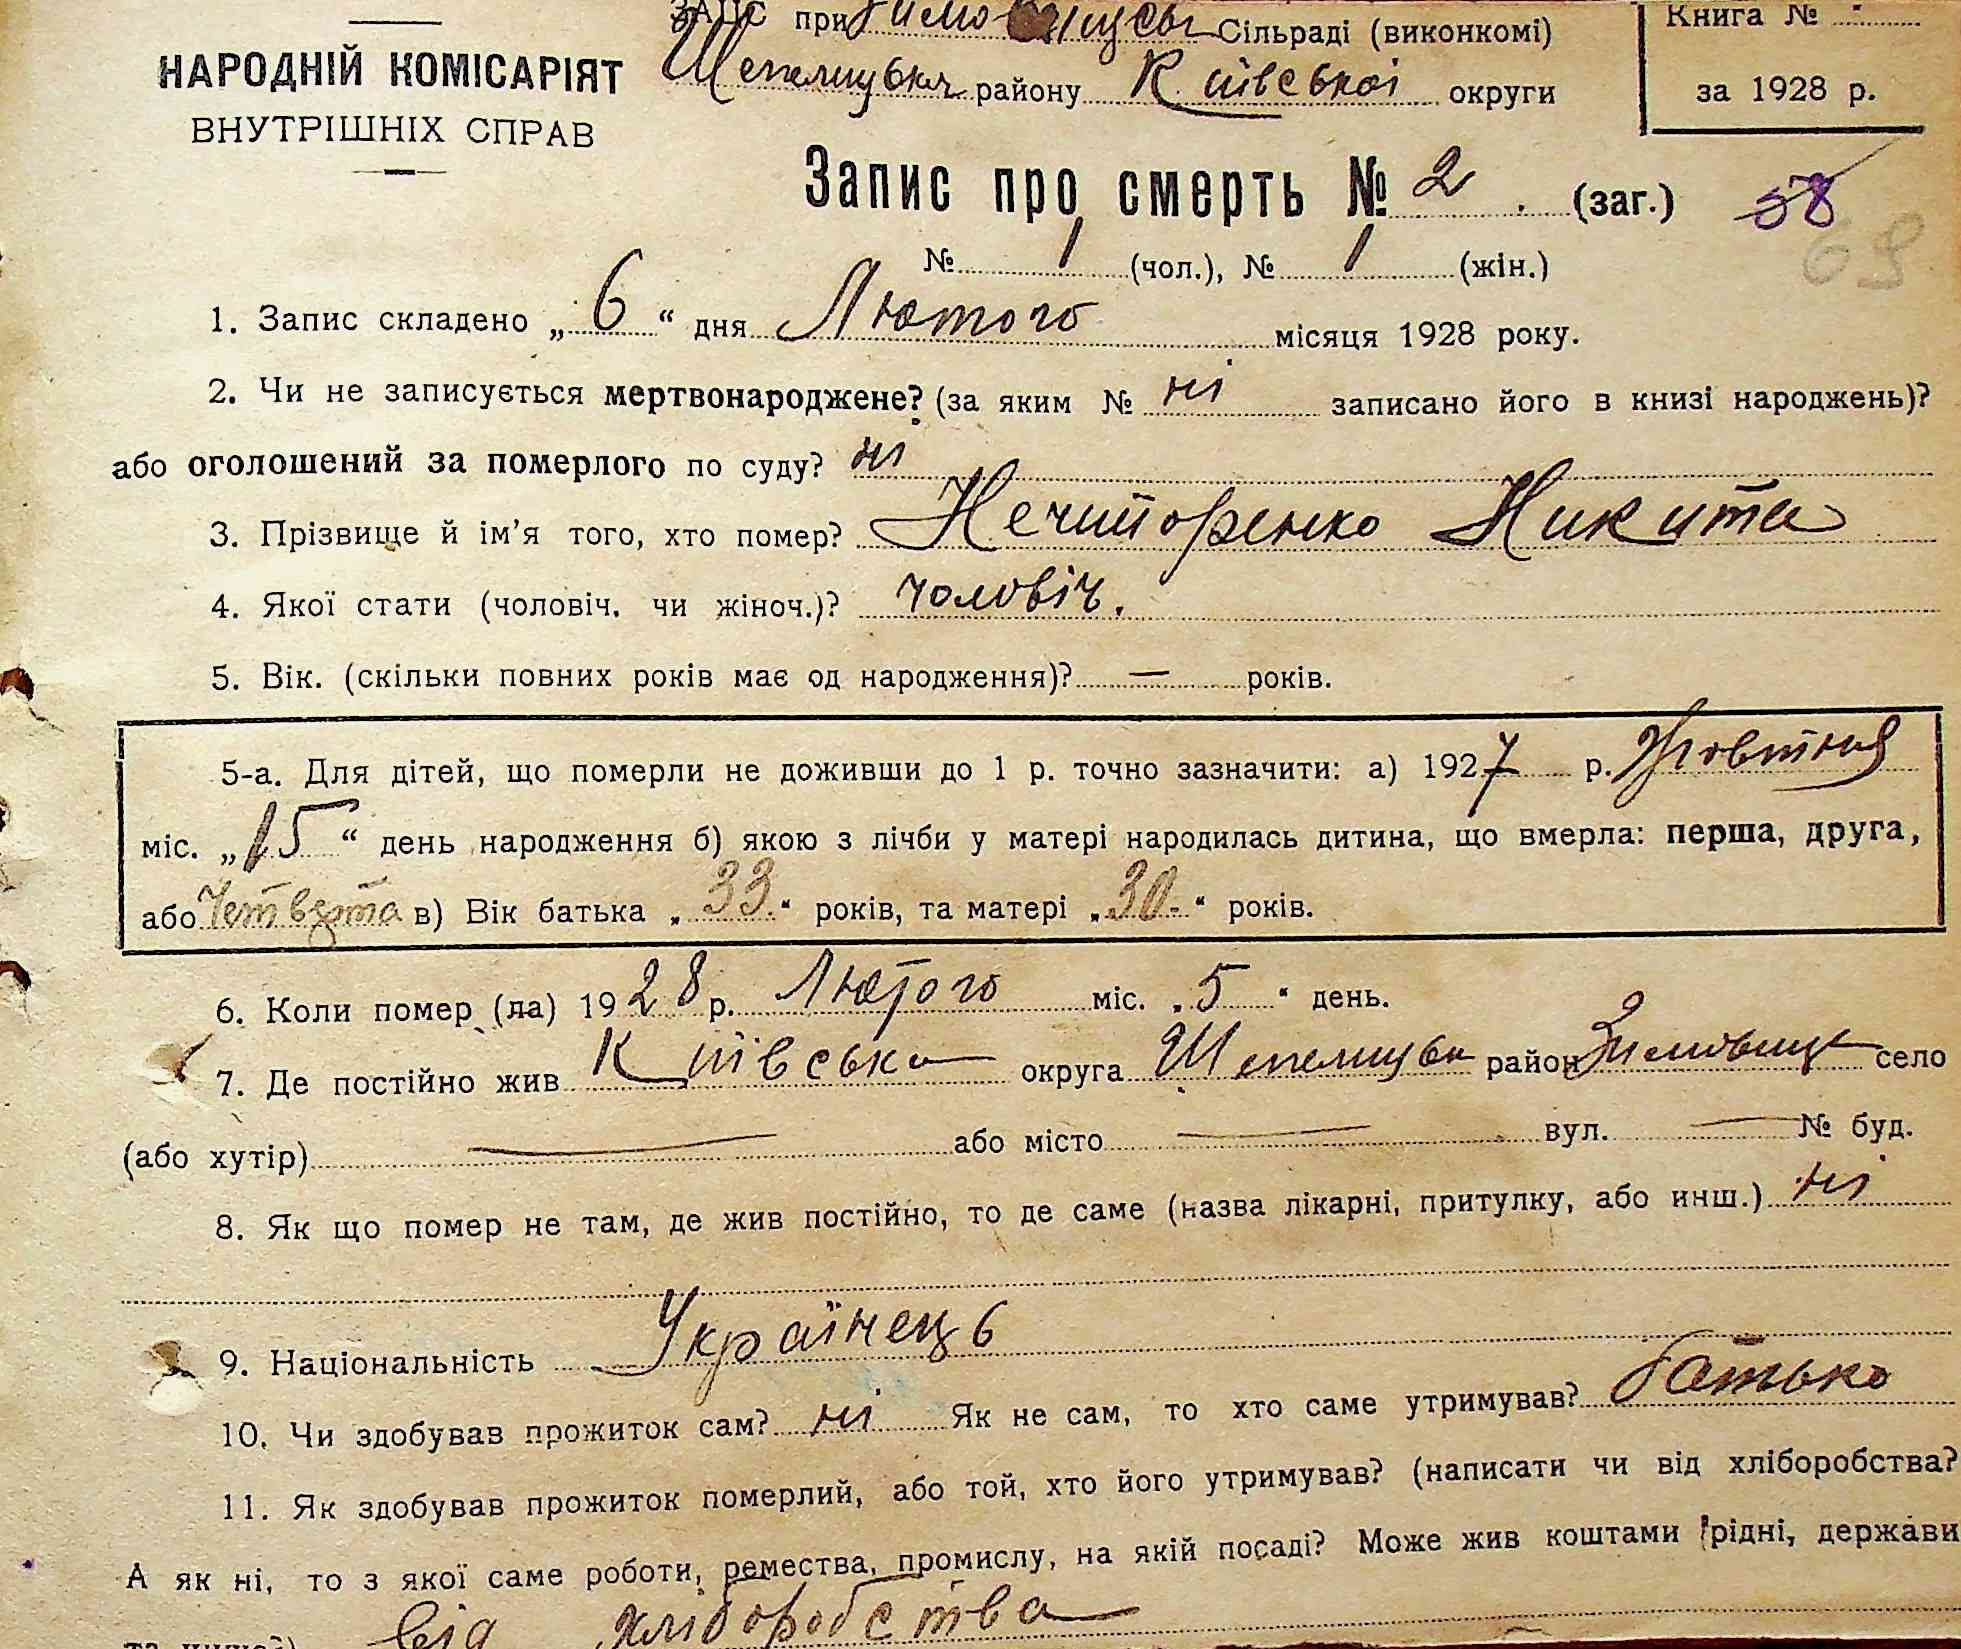 ЗАГС при Зимовищес. Сільраді (виконкомі)
Шепелицька району Київської округи
Книга №
за 1928 р.
НАРОДНІЙ КОМІСАРІЯТ
ВНУТРІШНІХ СПРАВ
Запис про смерть № 2. (заг.) 58
69
№ 1 (чол.), № 1 (жін.)
1. Запис складено „6“ дня Лютого місяця 1928 року.
2. Чи не записується мертвонароджене? (за яким № ні записано його в книзі народжень)?
або оголошений за померлого по суду? ні
3. Прізвище й ім’я того, хто помер? Нечипоренко Никита
4. Якої стати (чоловіч. чи жіноч.)? чоловіч.
5. Вік. (скільки повних років має од народження)? — років.
5-а. Для дітей, що померли не доживши до 1 р. точно зазначити: а) 1927 р. Жовтня
міс. „15“ день народження б) якою з лічби у матері народилась дитина, що вмерла: перша, друга,
або Четверта в) Вік батька „33.“ років, та матері „30.“ років.
6. Коли помер (ла) 1928 р. Лютого міс. „5“ день.
7. Де постійно жив Київська округа Шепелицьк район Зимовище село
(або хутір) — або місто — вул. — № буд.
8. Як що помер не там, де жив постійно, то де саме (назва лікарні, притулку, або инш.) ні
9. Національність Українець
10. Чи здобував прожиток сам? ні Як не сам, то хто саме утримував? батько
11. Як здобував прожиток померлий, або той, хто його утримував? (написати чи від хліборобства?
А як ні, то з якої саме роботи, ремества, промислу, на якій посаді? Може жив коштами рідні, держави
від хліборобства